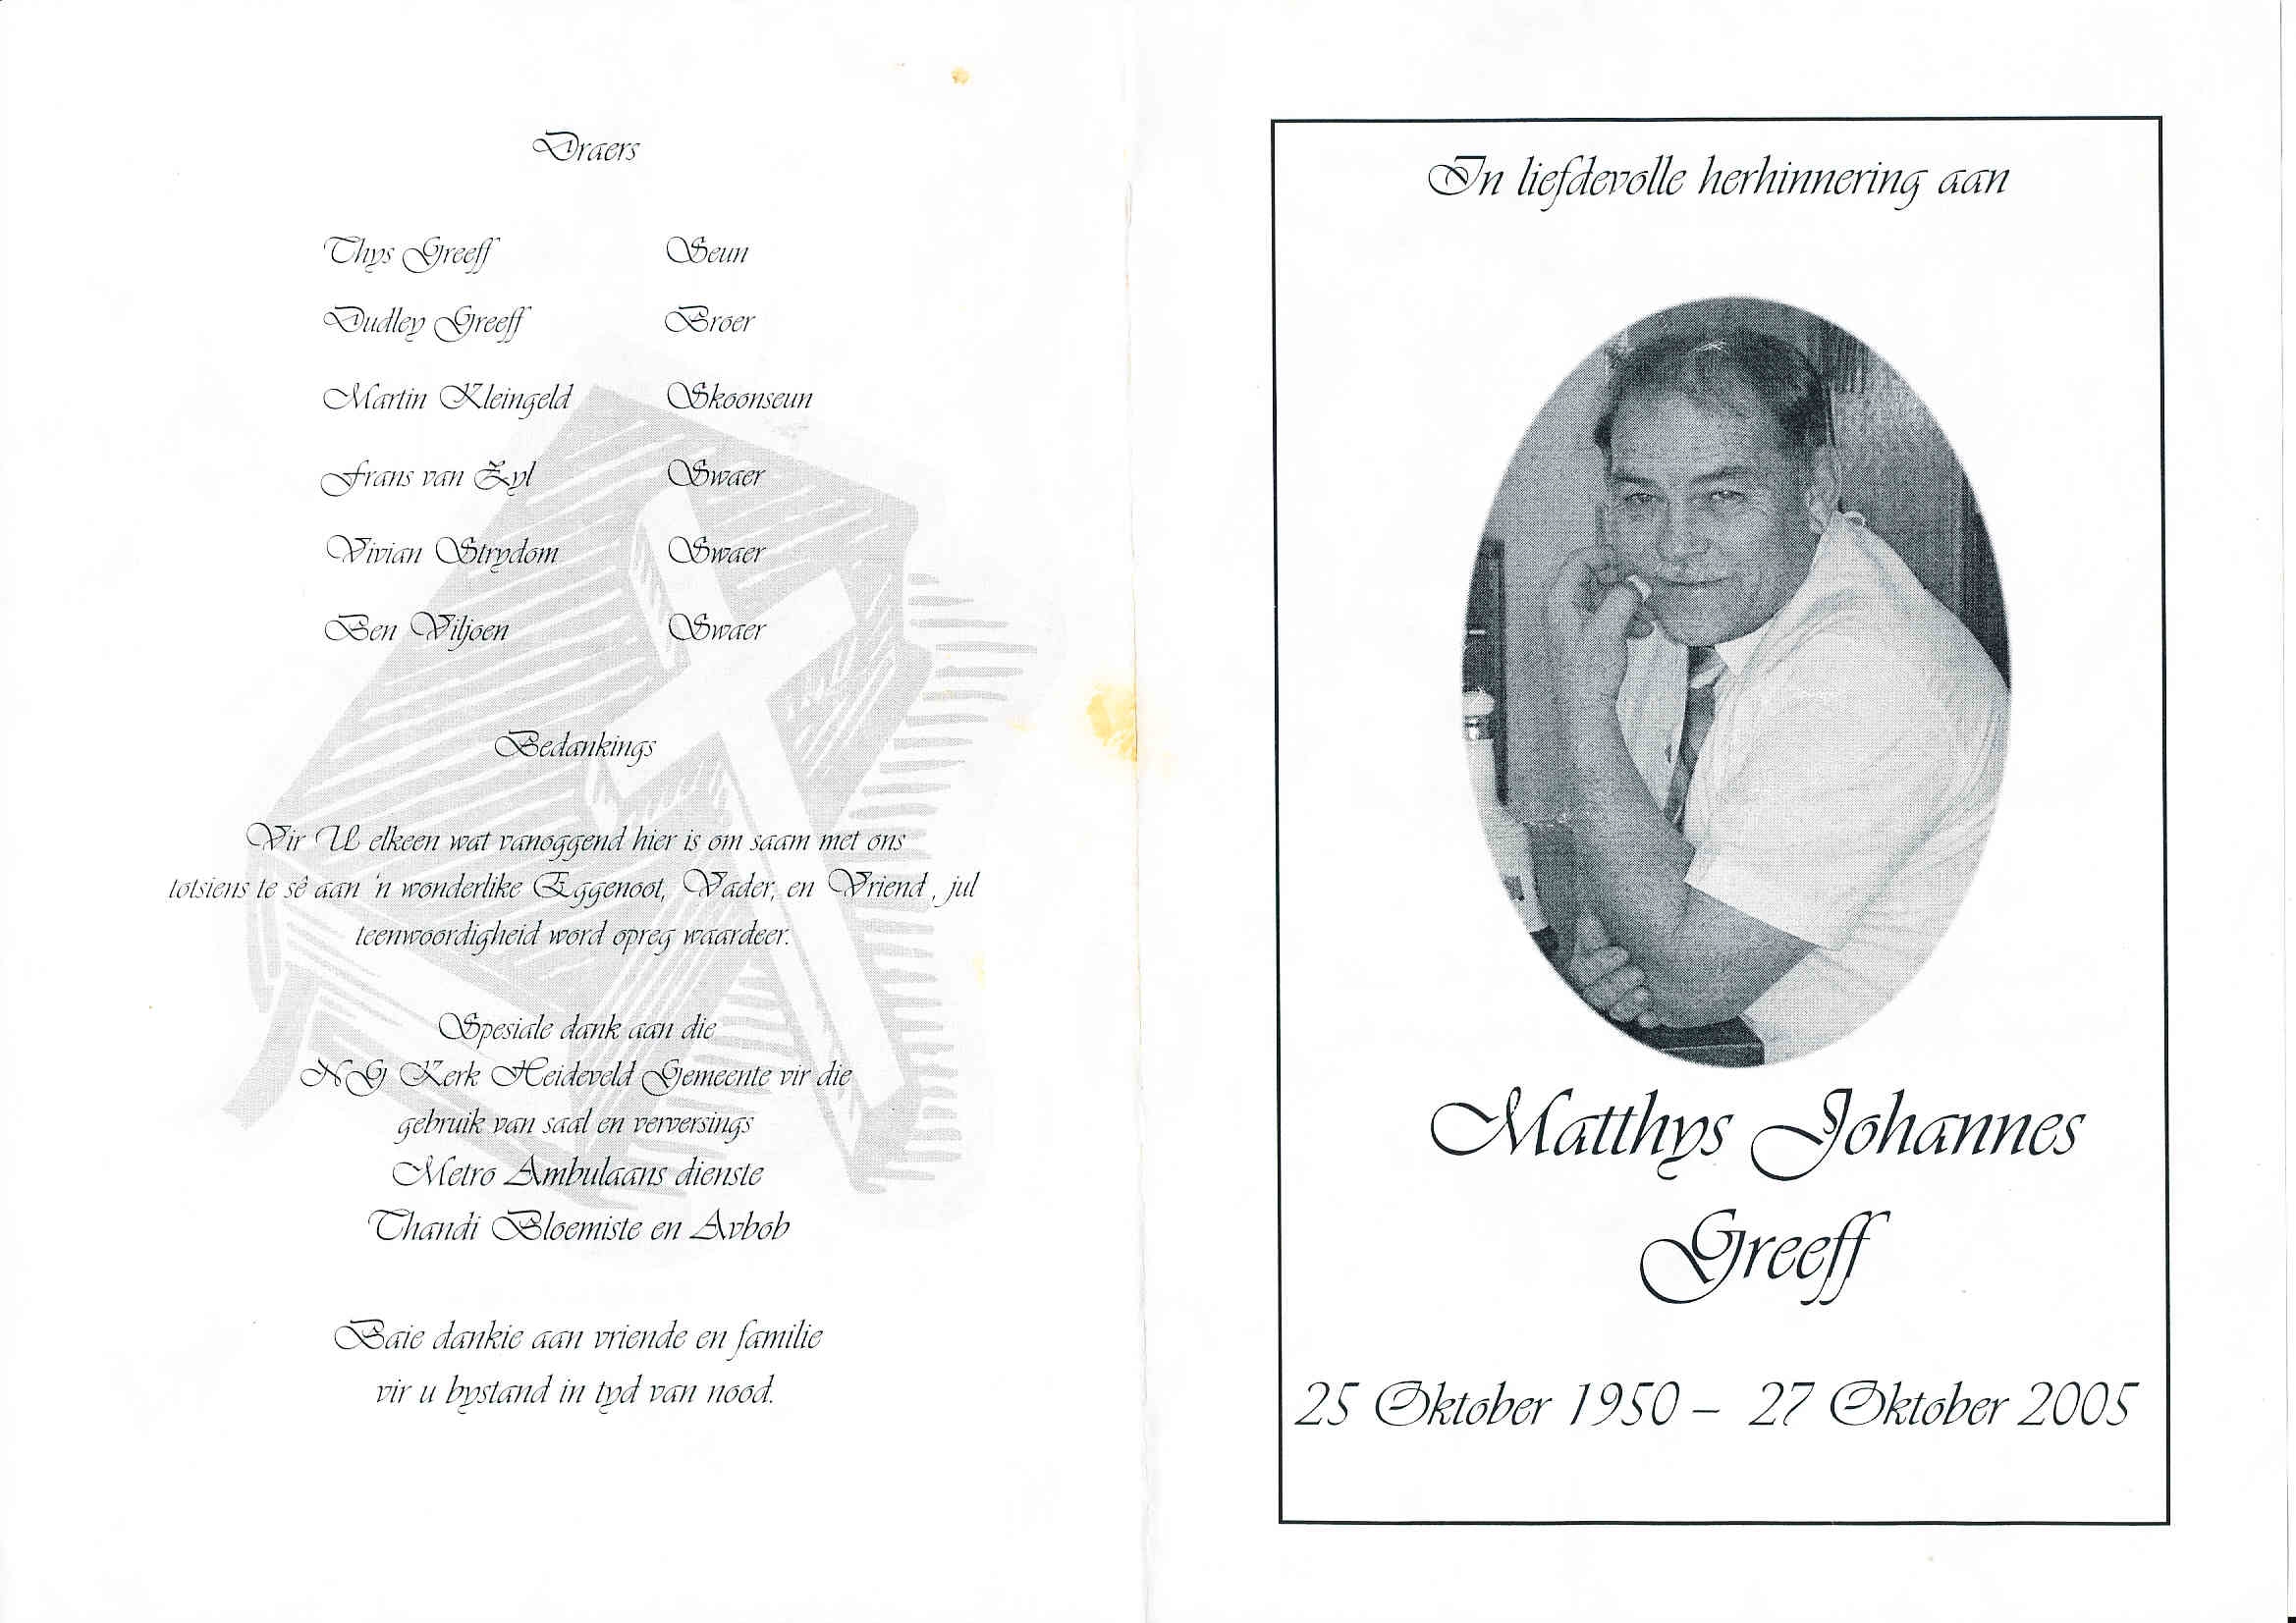 Draers
Thys Greeff Seun
Dudley Greeff Broer
Martin Kleingeld Skoonseun
Frans van Zyl Swaer
Vivian Strydom Swaer
Ben Viljoen Swaer
Bedankings
Vir U elkeen wat vanoggend hier is om saam met ons
totsiens te sê aan 'n wonderlike Eggenoot, Vader, en Vriend , jul
teenwoordigheid word opreg waardeer.
Spesiale dank aan die
NG Kerk Heideveld Gemeente vir die
gebruik van saal en verversings
Metro Ambulaans dienste
Thandi Bloemiste en Avbob
Baie dankie aan vriende en familie
vir u bystand in tyd van nood.
In liefdevolle herhinnering aan
Matthys Johannes
Greeff
25 Oktober 1950 – 27 Oktober 2005